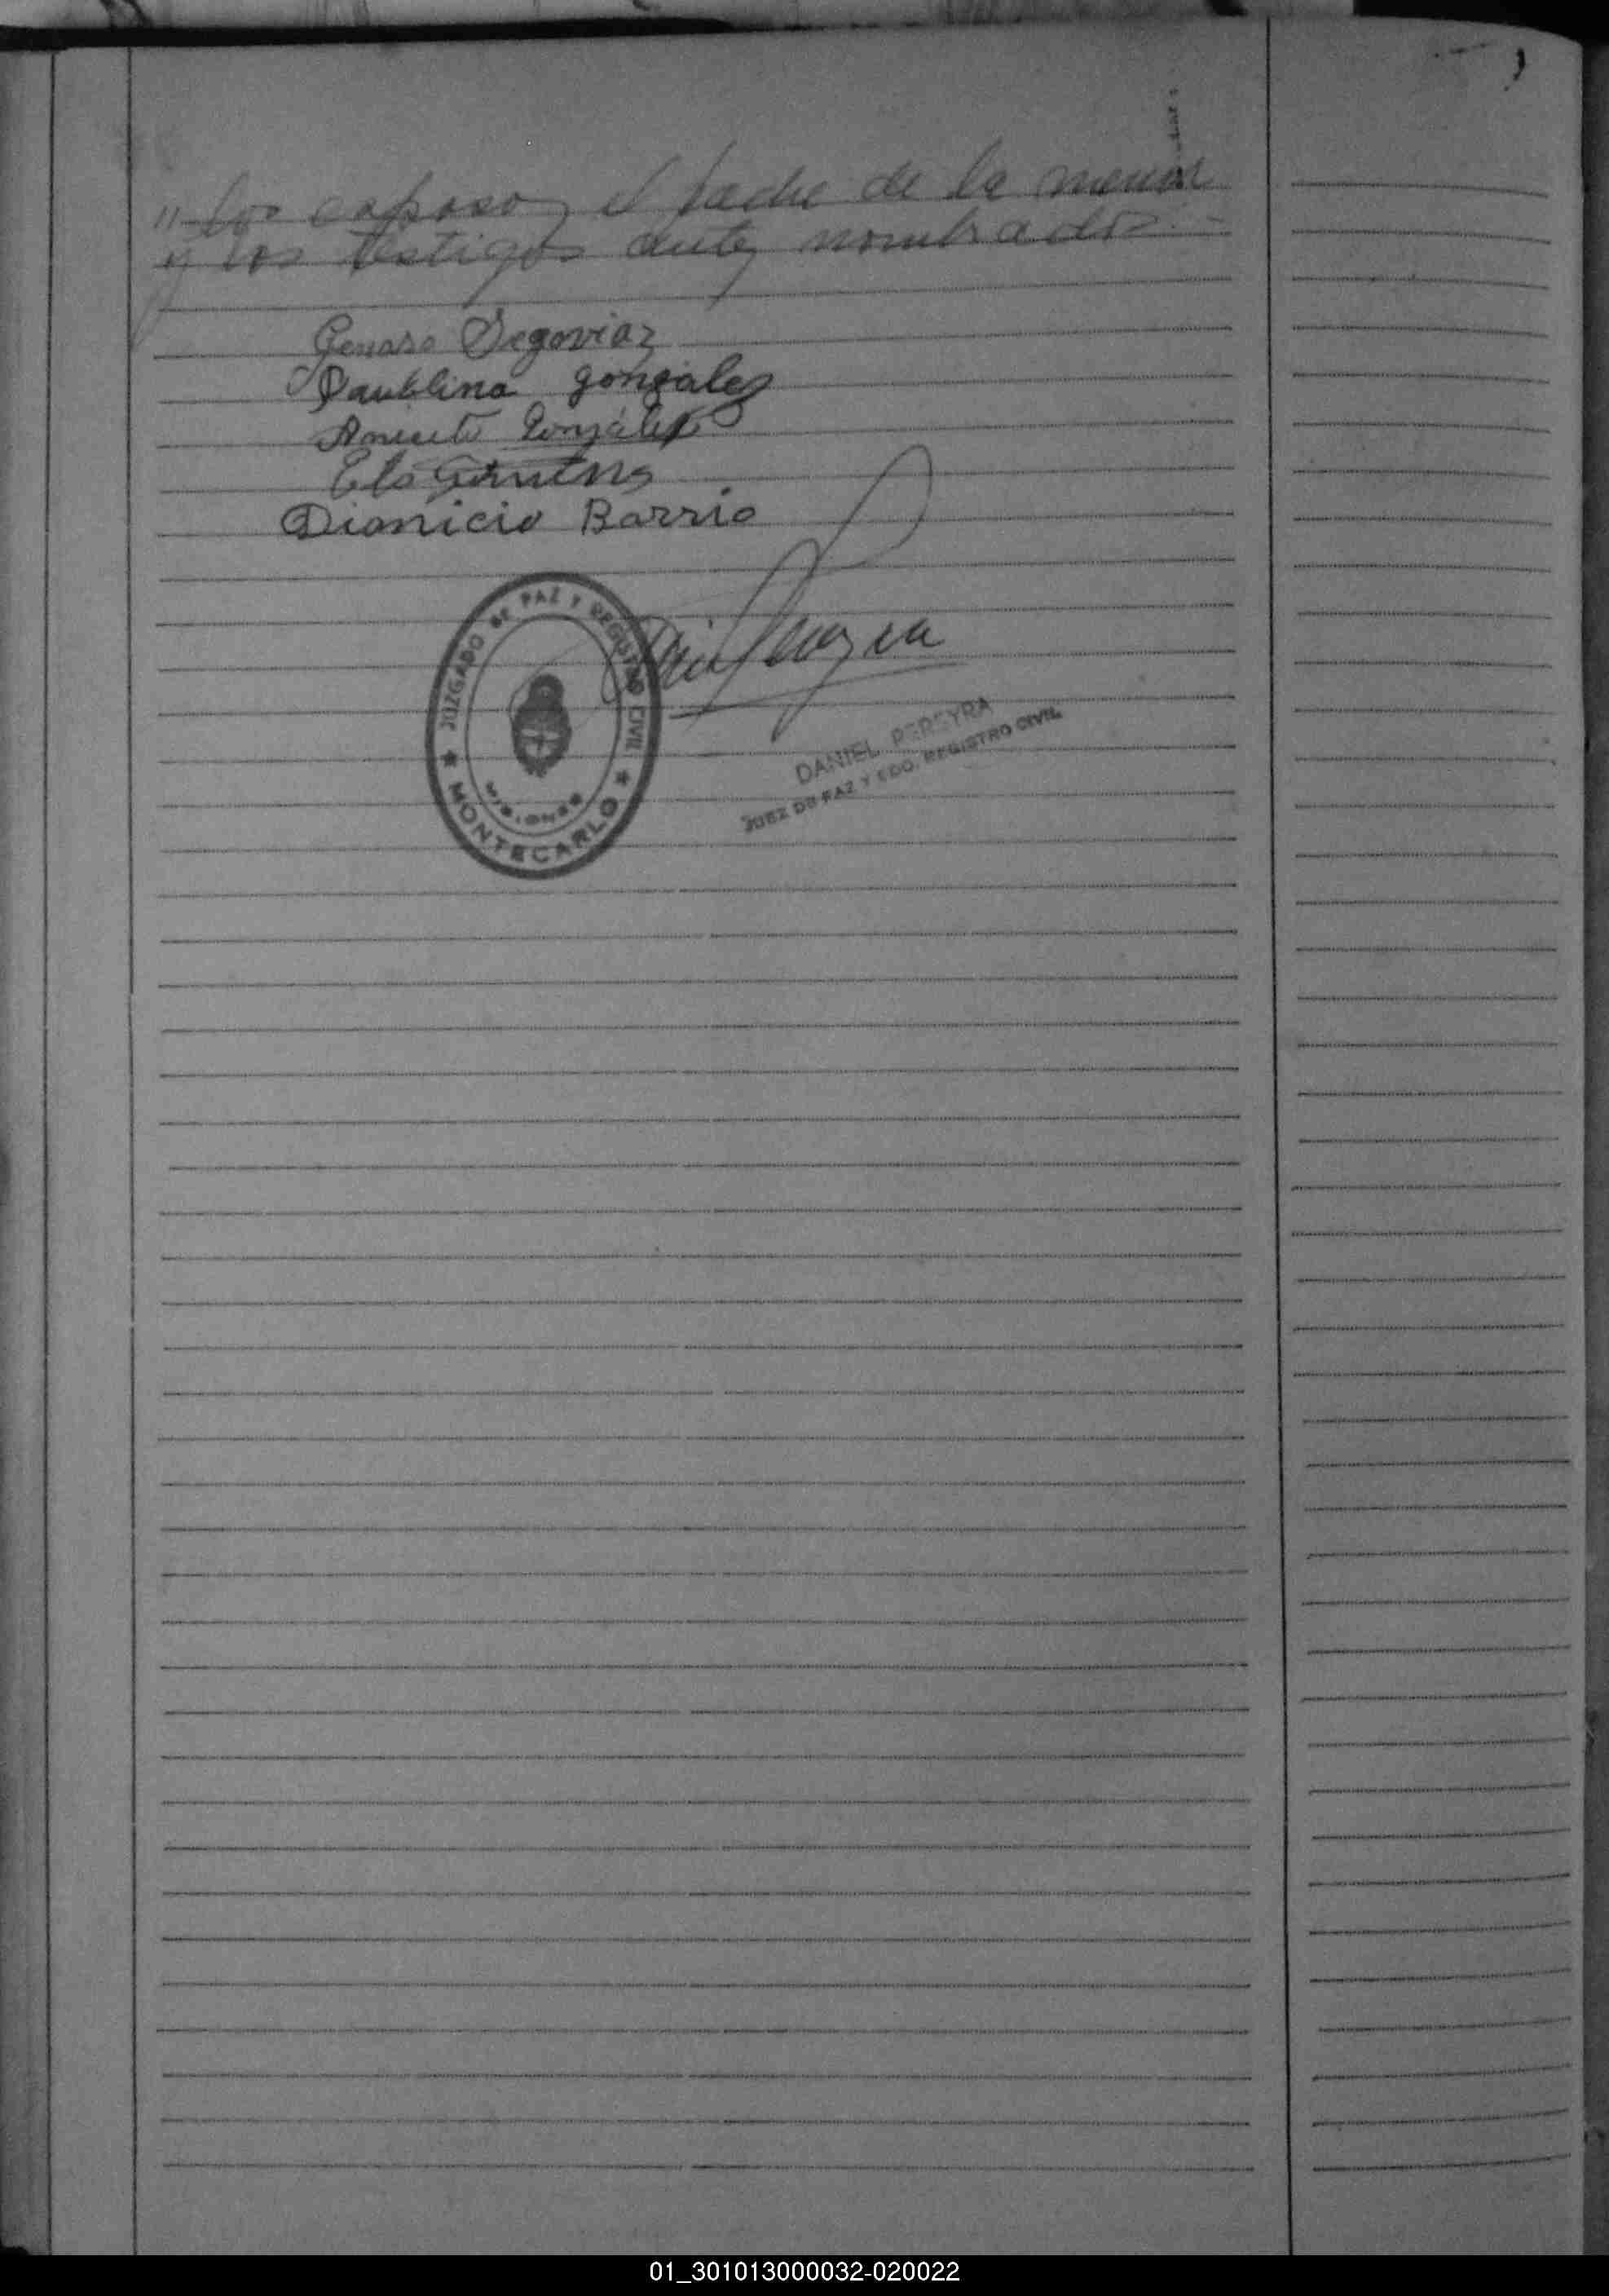 "los esposos, el padre de la menor
y los testigos antes nombrados.-
Genaro Segoviaz
Paublina gonzalez
Aniceto González
Dionicio Barrio
JUZGADO DE PAZ Y REGISTRO CIVIL
MISIONES
★ MONTECARLO ★
DANIEL PEREYRA
JUEZ DE PAZ Y EDO. REGISTRO CIVIL
01_301013000032-020022